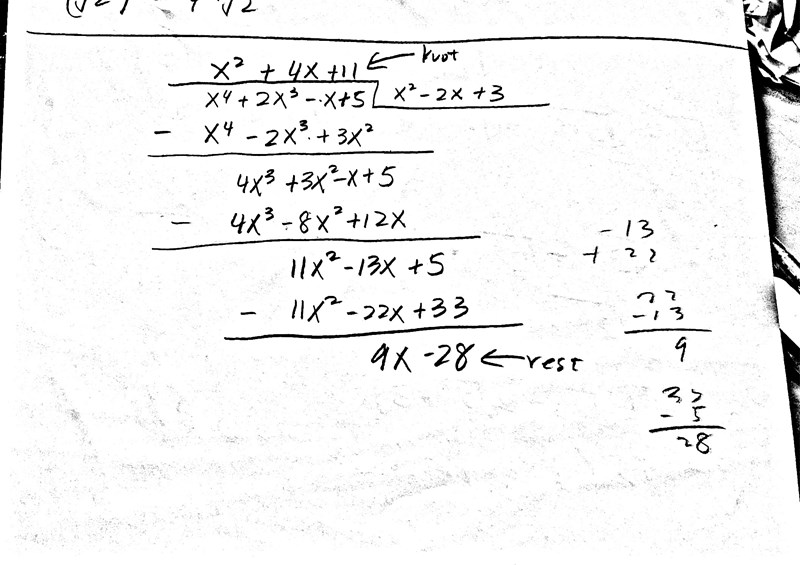 x² + 4x + 11 ←
x⁴ + 2x³ - x + 5 | x² - 2x + 3
- x⁴ - 2x³ + 3x²
4x³ + 3x² - x + 5
- 4x³ - 8x² + 12x
11x² - 13x + 5
- 11x² - 22x + 33
9x - 28 ← rest
- 13
+ 22
22
- 13
9
- 5
28